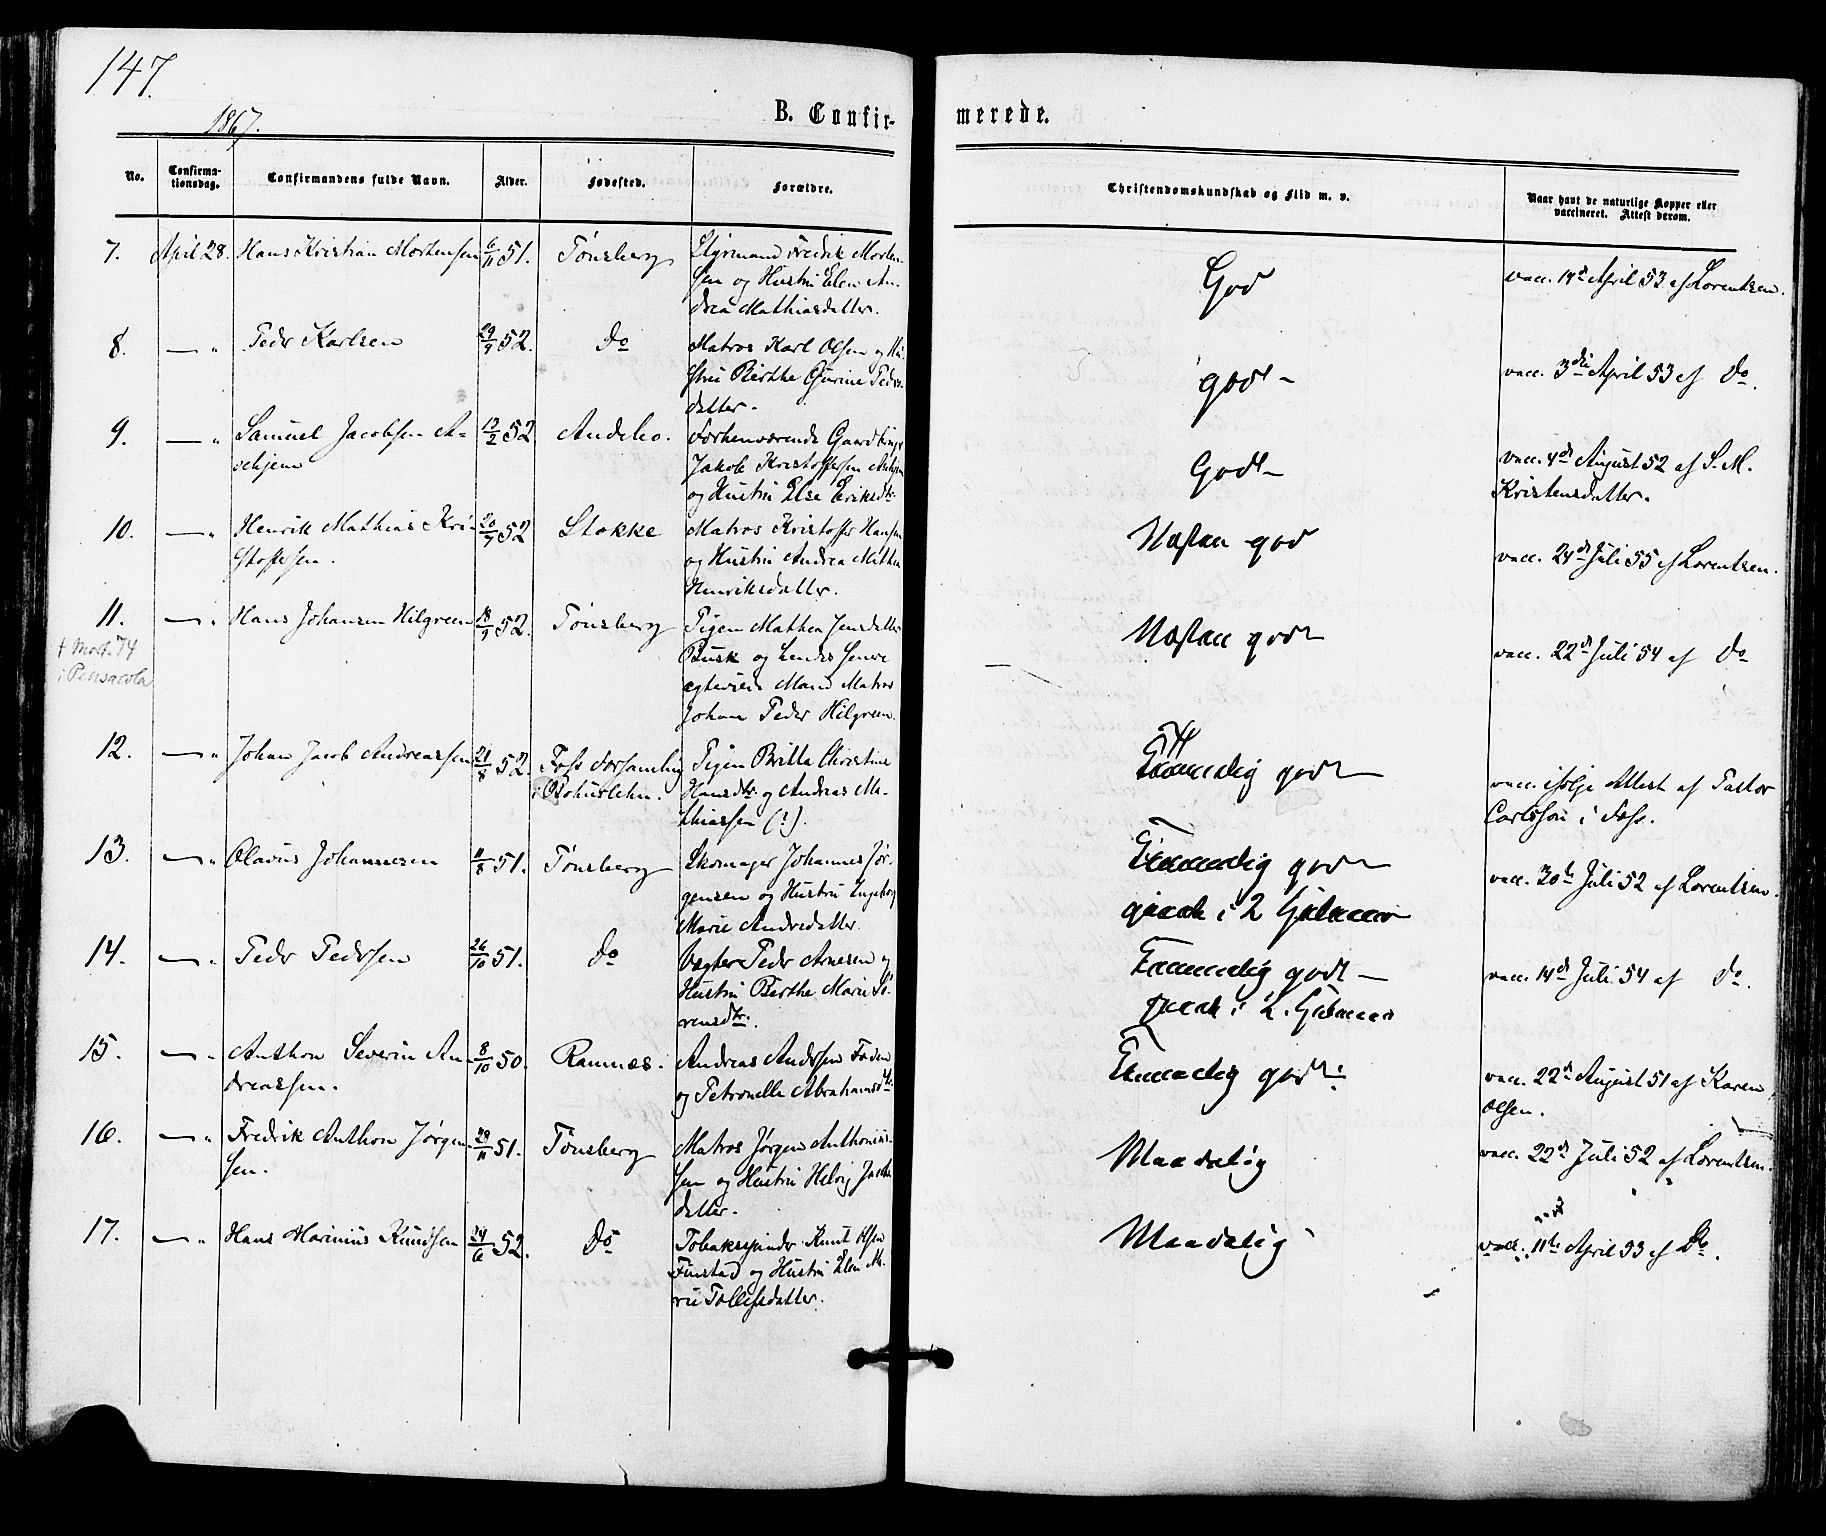 147.
1867.
B. Confirmerede.
No. Confirmationsdag. Confirmandens fulde Navn. Alder. Fødested. Forældre. Christendomskundskab og Flid m. v. Naar havt de naturlige Kopper eller vaccineret. Attest derom.
7. April 28. Hans Kristian Mortensen 6/11 51. Tønsberg Styrmand Fredrik Morten-
sen og Hustru Elen An-
drea Mathiasdatter.
God
vacc. 14d April 53 af Lorentzen.
8. — " Peder Karlsen 29/9 52. Do Matros Karl Olsen og Hu-
stru Birthe Gurine Peders-
datter.
god
vacc. 3die April 53 af Do.
9. — " Samuel Jacobsen A-
skjem 12/2 52 Andebo. Forhenværende Gaardbruger
Jakob Kristoffersen Askjem
og Hustru Else Eriksdtr.
Godt
vacc. 4d August 52 af S. M.
Kristensdatter.
10. — " Henrik Mathias Kri-
stoffersen. 20/9 52 Stokke Matros Kristoffer Hansen
og Hustru Andrea Mathea
Henriksdatter.
Næsten god
vacc. 24d Juli 55 af Lorentzen.
11. — " Hans Johansen Hilgreen 18/9 52. Tønsberg Pigen Mathea Jensdatter
Busk og hendes senere
ægteviede Mand Matros
Johan Peder Hilgreen.
† Mort. 74
i Pensacola
Næsten godt
vacc. 22d Juli 54 af Do
12. — " Johan Jacob Andreassen 21/8 52. Foss Forsamling
i Bohuslehn. Pigen Britta Christine
Hansdtr. og Andreas Ma-
thiassen (?).
Temmelig godt
vacc. ifølge Attest af Pastor
Carlsson i Foss.
13. — " Olavus Johannesen 11/8 51. Tønsberg Skomager Johannes Jør-
gensen og Hustru Ingeborg
Marie Andredatter.
Temmelig godt
i 2
vacc. 30te Juli 52 af Lorentzen.
14. — " Peder Pedersen 26/10 51. Do Vægter Peder Arnesen og
Hustru Birthe Marie Sø-
rensdtr.
Temmelig godt
i 2.
vacc. 14d Juli 54 af Do.
15. — " Anthon Severin An-
dreassen. 8/10 50. Ramnæs. Andreas Andersen Foden
og Petronelle Abrahamsdtr.
Temmelig godt
vacc. 22d August 51 af Karen
Olsen.
16. — " Fredrik Anthon Jørgen-
sen. 29/11 51. Tønsberg Matros Jørgen Anthonius-
sen og Hustru Helvig Jacobs-
datter.
Maadelig
vacc. 22d Juli 52 af Lorentzen.
17. — " Hans Marinius Knudsen 24/6 52. Do Tobaksspinder Knut Olsen
Finstad og Hustru Elen Ma-
rie Tollefsdatter.
Maadelig
vacc. 11te April 53 af Do.